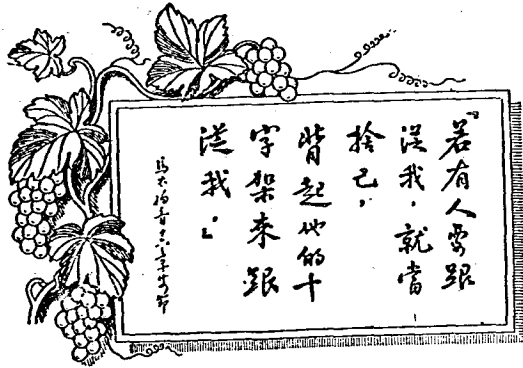 『若有人要跟
從我，就當
捨己，
背起他的十
字架來跟
從我。』
馬太福音十六章廿四節